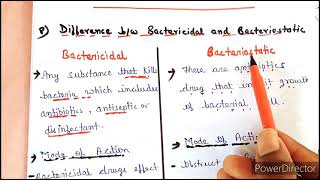 8) Difference b/w Bactericidal and Bacteriostatic
Bactericidal
→ Any substance that kills
bacteria which includes
antibiotics, antiseptic or
disinfectant.
→ Mode of Action
Bactericidal drugs effect
Bacteriostatic
→ These are antibiotics
drug that growth
of bacterial
→ Mode of Action
Obstruct
PowerDirector